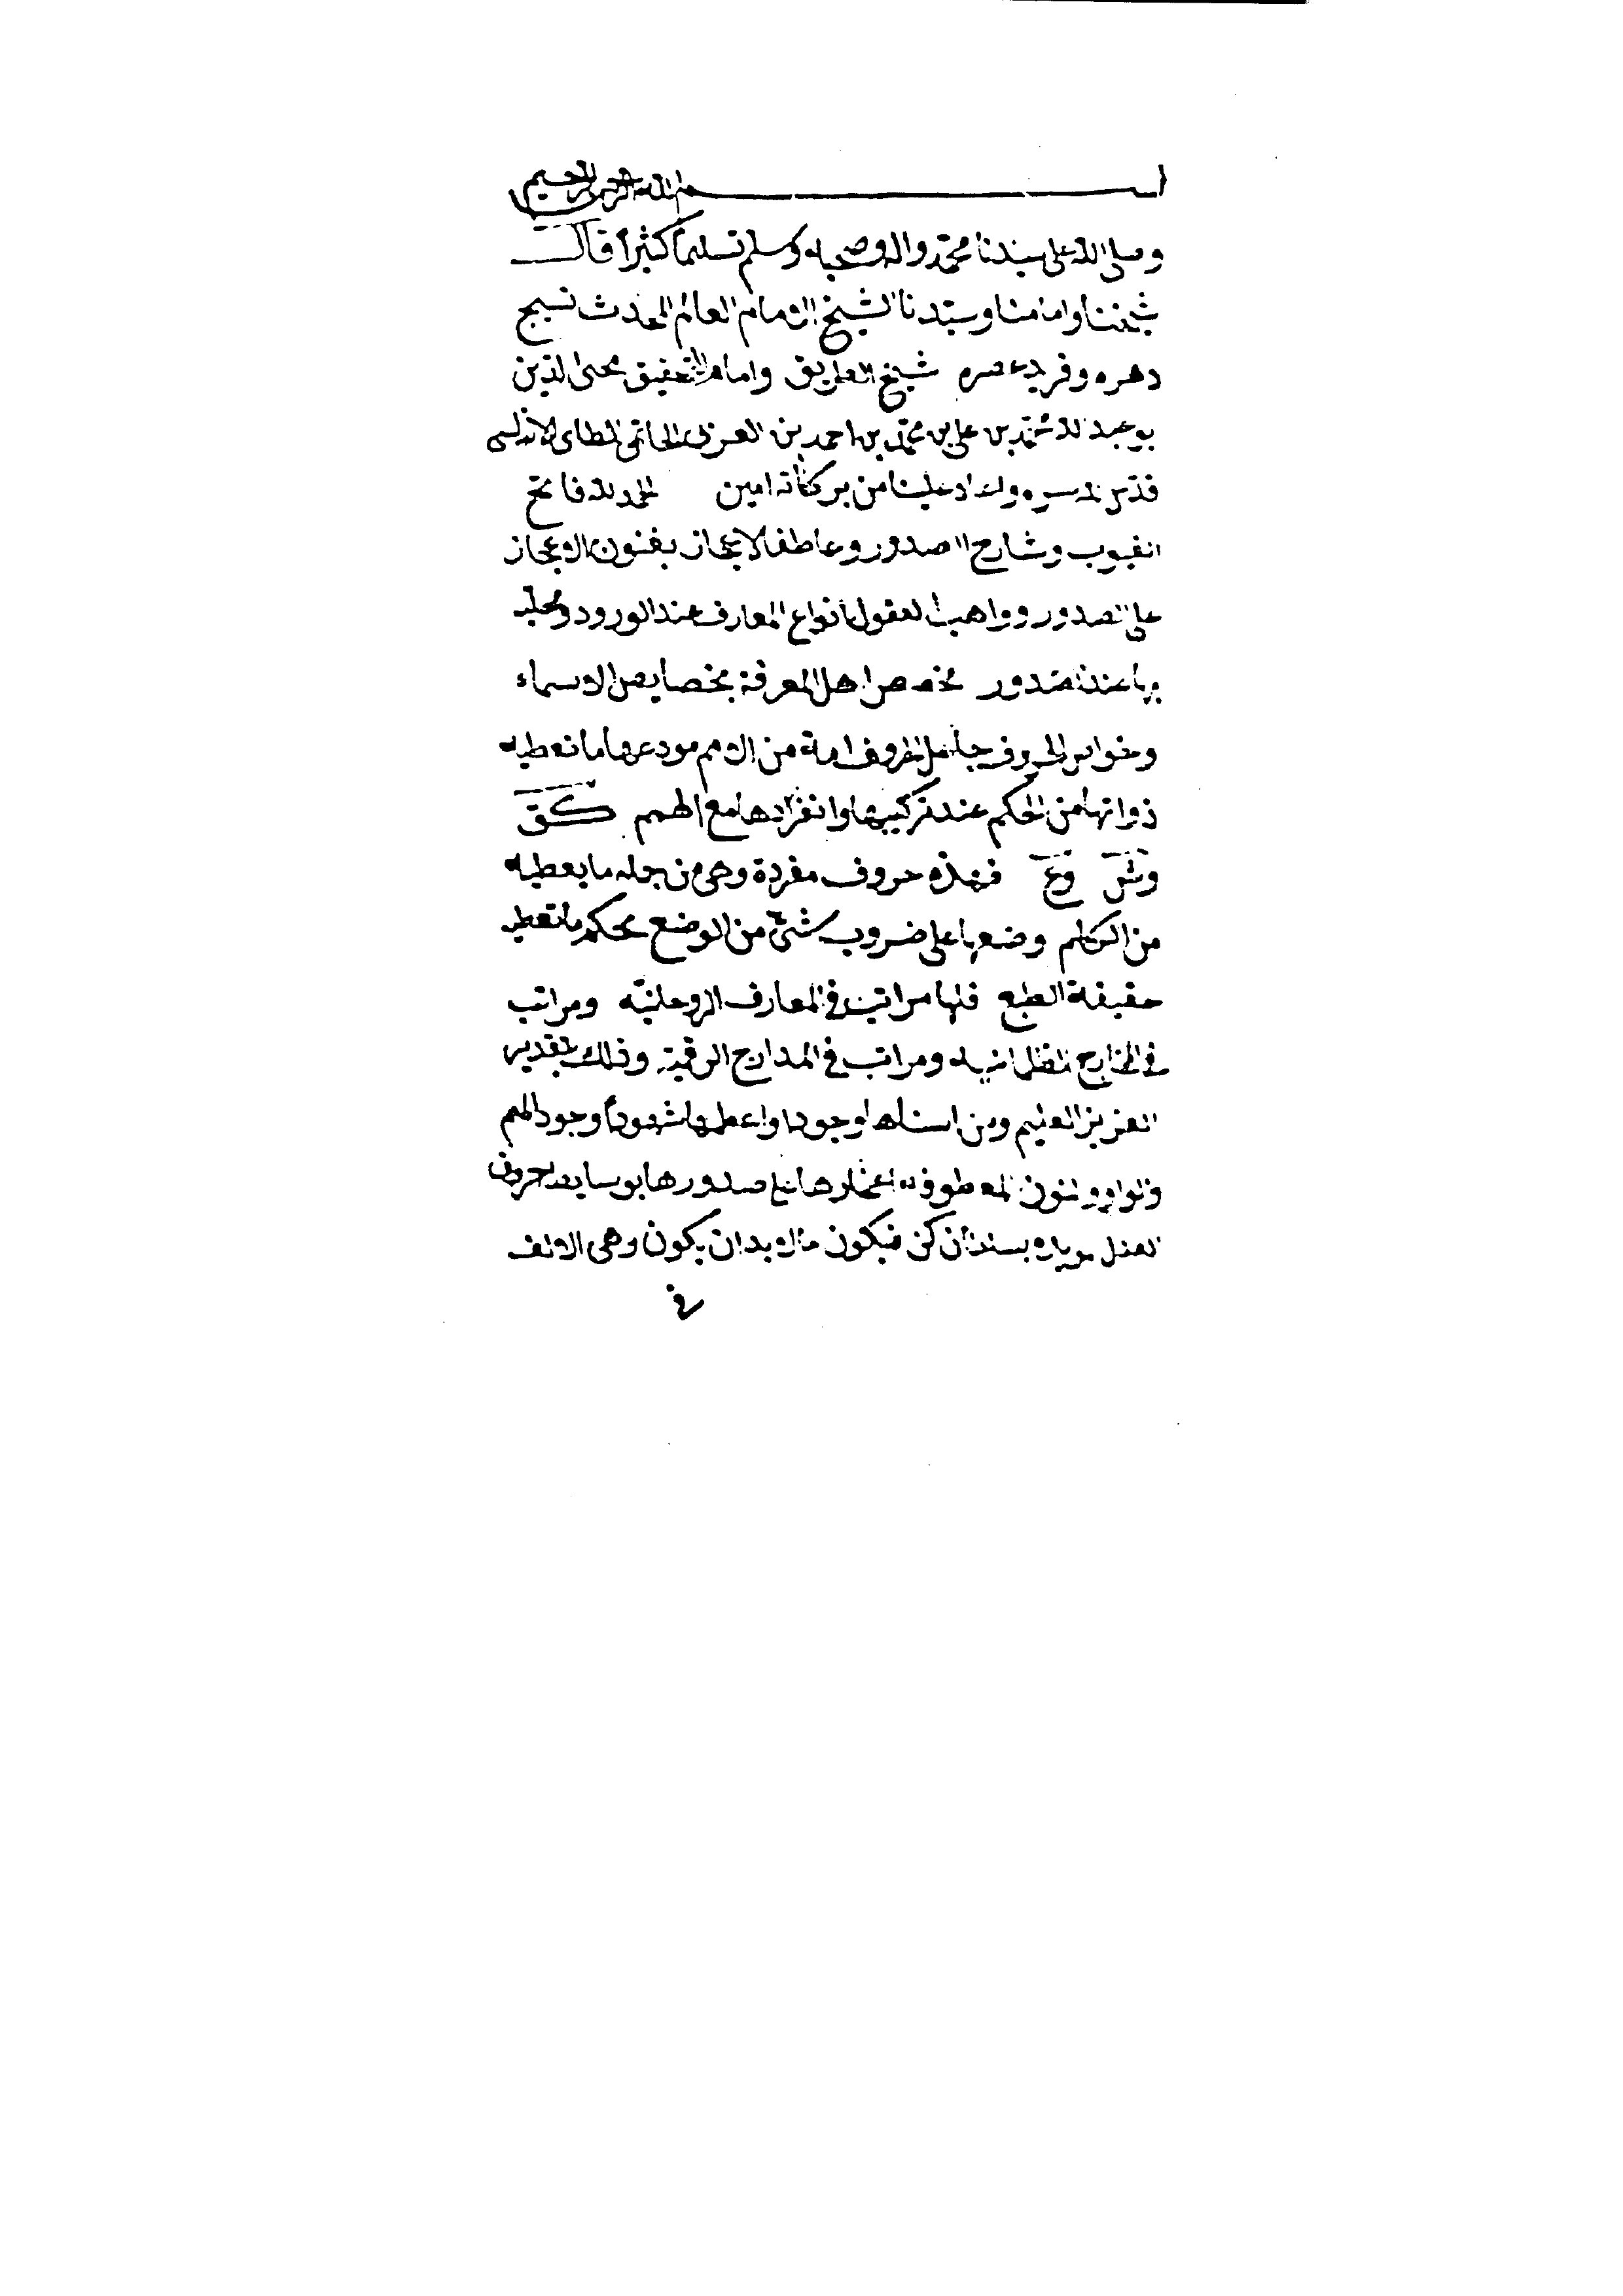 بسم الله الرحمن الرحيم
وصلى الله على سيدنا محمد واله وصحبه وسلم تسليما كثيرا قال
شيخنا وامامنا وسيدنا الشيخ الامام العالم المحدث نسيج
دهره وفريد عصره شيخ الطريق وامام التحقيق محيى الدين
بو عبد الله محمد بن على بن محمد بن احمد بن العربى الحاتمى الطاى الاندلسى
قدس الله سره واعاد علينا من بركاته امين الحمد لله فاتح
الغيوب وشارح الصدور وعاطف الاعجاز بفنون الاعجاز
على الصدور وواهب العقول بانواع المعارف عند الورود
بها عند الصدور مخصص اهل المعرفة بخصايص الاسماء
وخواص الحروف جاعل الحروف امة من الامم مودعها ما تعطيه
ذواتها من الحكم عند تركيبها وانفرادها مع الهمم كَقَ
وشَ وعَ فهذه حروف مفردة وهى من جملة ما يعطيه
من الكلم وضعها على ضروب شتى من الوضع بحكم ما تعطيه
حقيقة الطبع فلها مراتب فى المعارف الروحانية ومراتب
فى المخارج الظلمانيه ومراتب فى المدارج الرقمية وذلك بتقدير
العزيز العليم ومن اسناها وجودا واعظمها شهودا وجود الميم
والواو والنون المعطوفة اعجازها على صدورها بوسايط حروف
العلل بسلطان كن فيكون ما لا بد ان يكون وهى الالف
فى